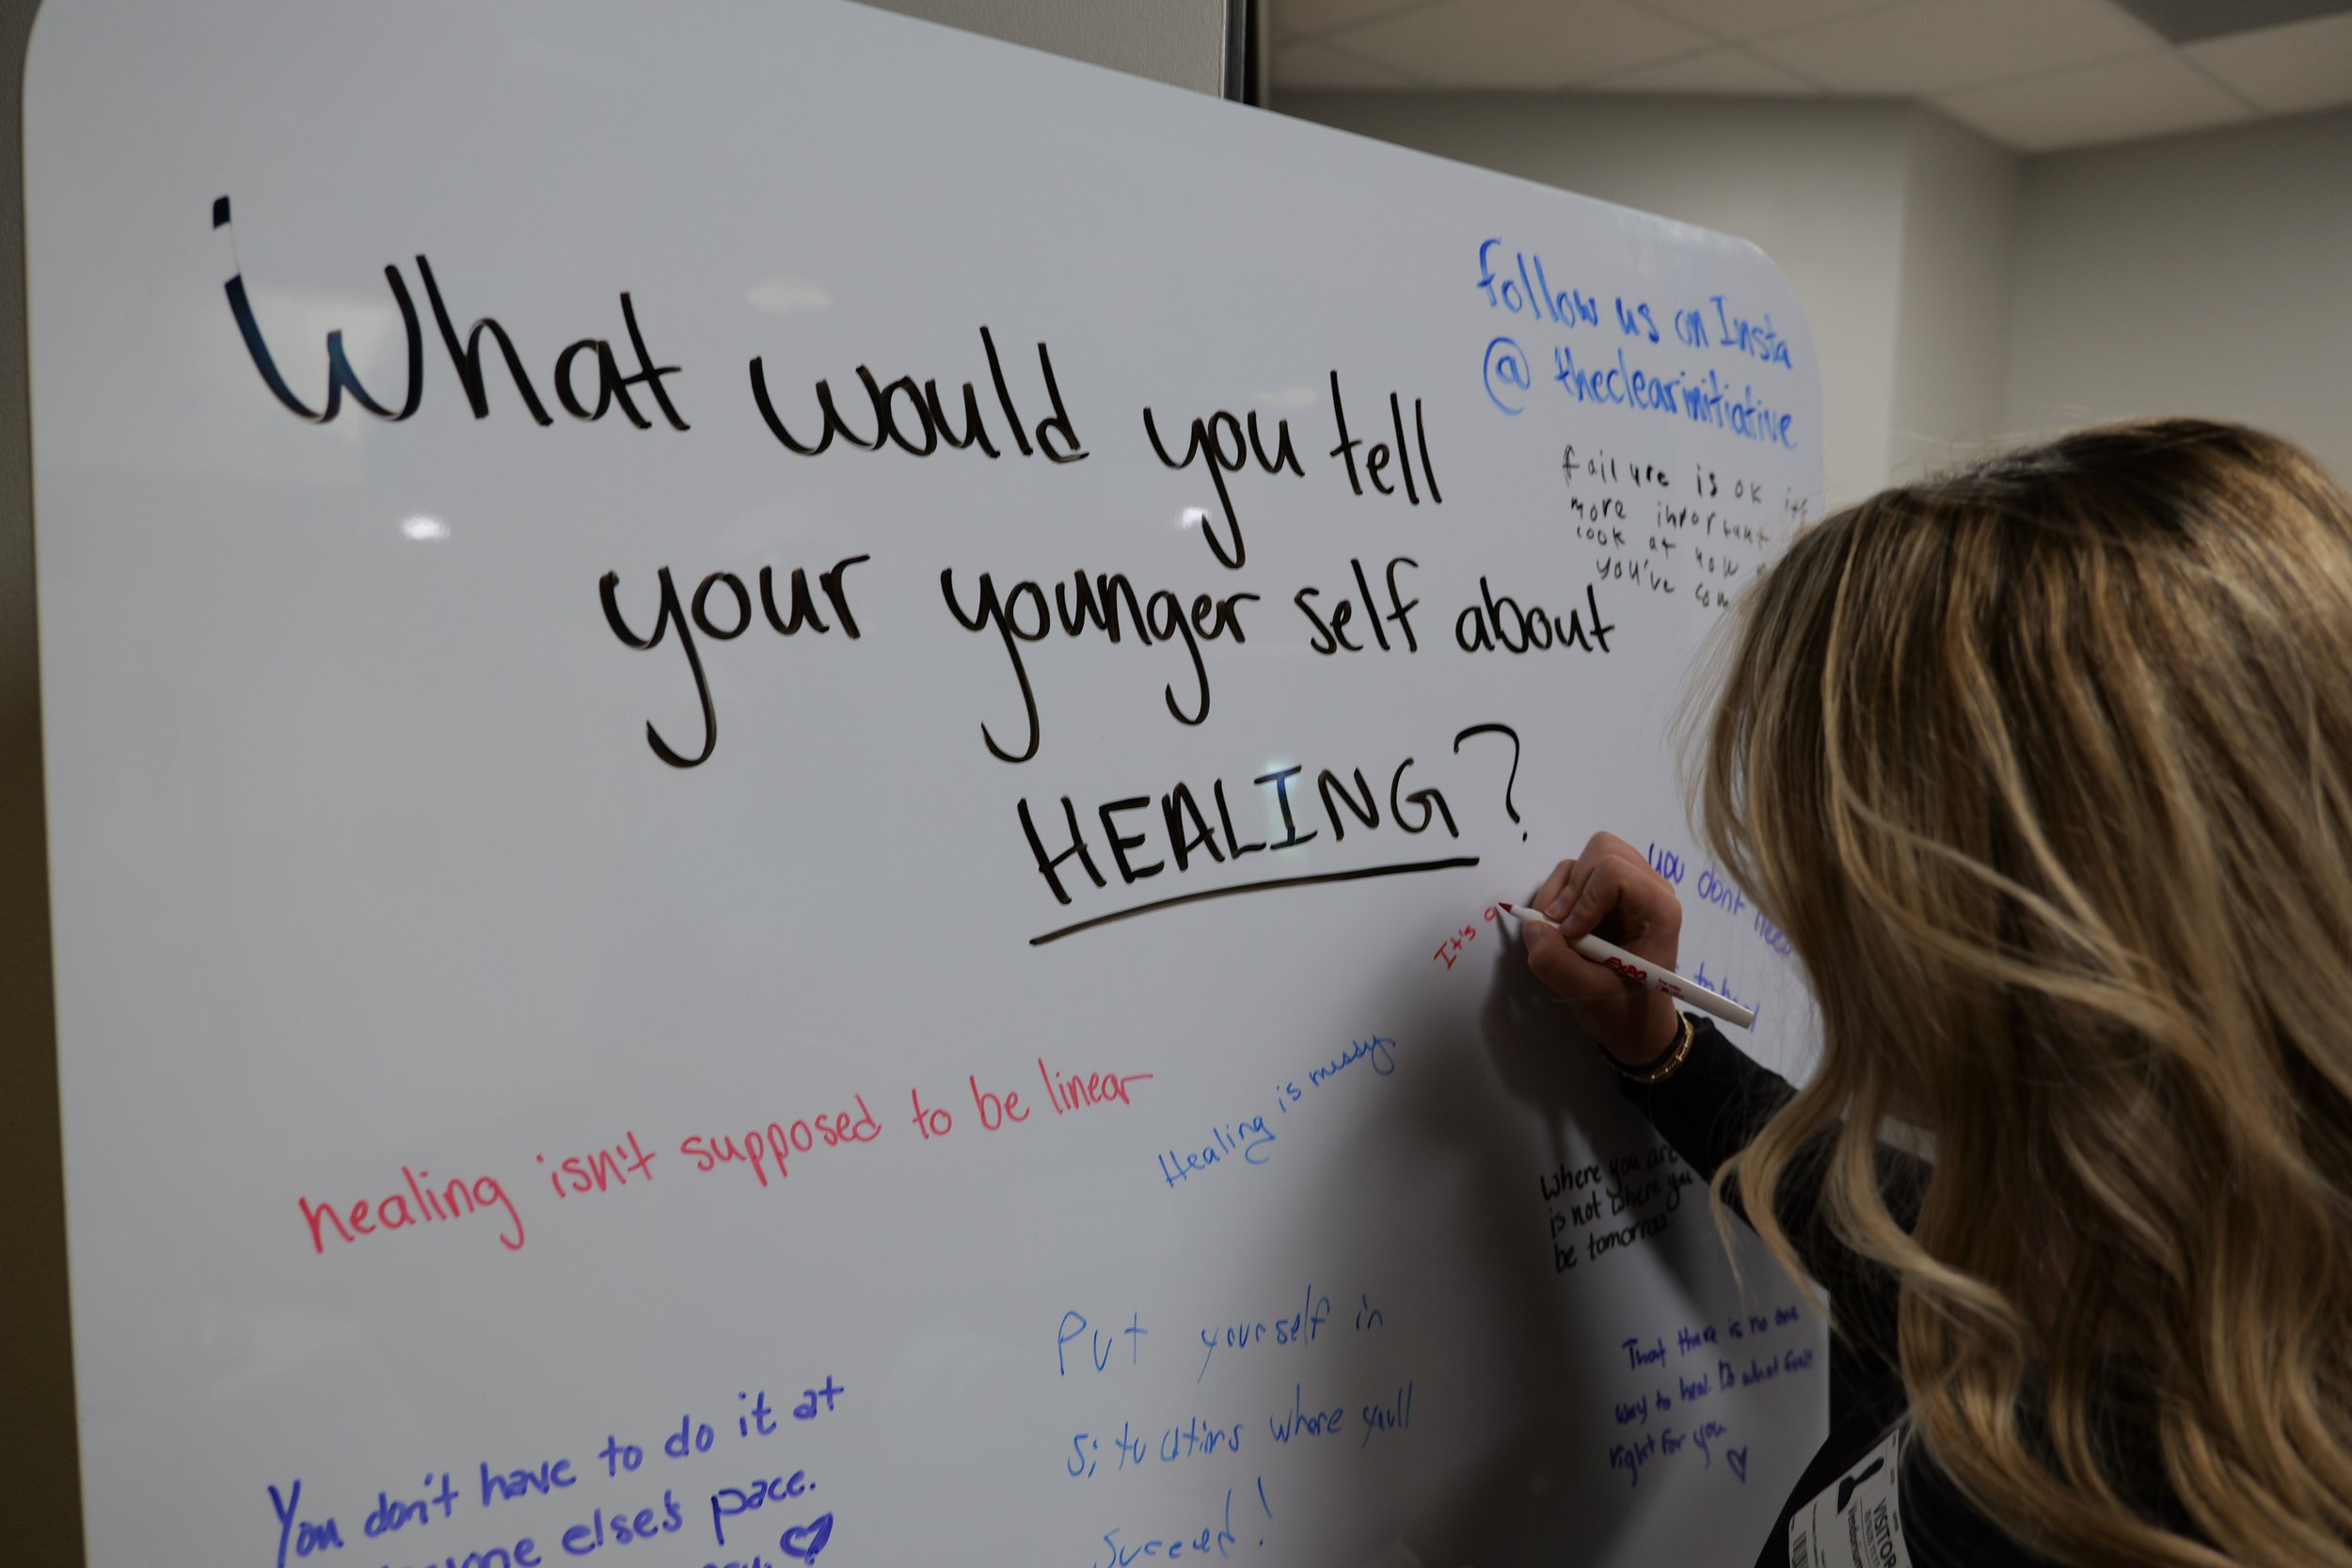 What would you tell
your younger self about
HEALING?
follow us on Insta
@theclearinitiative
failure is ok it's
more important
look at how
you've com
you don't need
to heal
It's a
healing isn't supposed to be linear
Healing is messy.
Where you are
is not where you
be tomorrow.
Put yourself in
situations where you'll
succeed!
That there is no one
way to heal. Do what feels
right for you
You don't have to do it at
else's pace.
EXPO
VISITOR